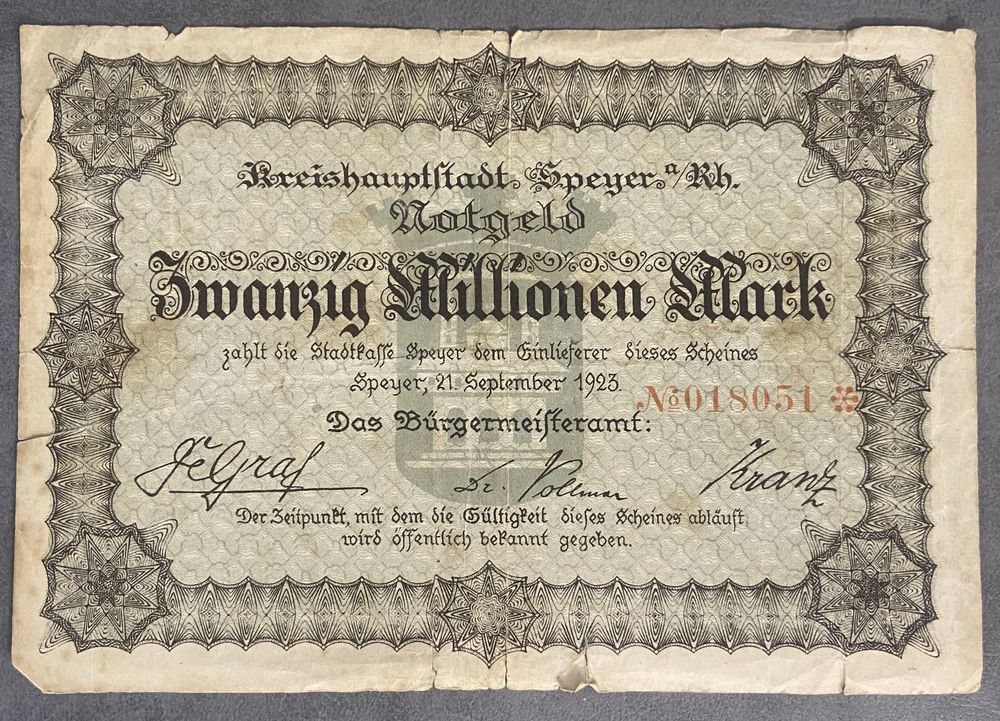 Kreishauptstadt Speyer a/Rh.
Notgeld
Zwanzig Millionen Mark
zahlt die Stadtkasse Speyer dem Einlieferer dieses Scheines
Speyer, 21. September 1923.
№018051 ❇
Das Bürgermeisteramt:
Dr. Vollmar Kranz
Der Zeitpunkt, mit dem die Gültigkeit dieses Scheines abläuft
wird öffentlich bekannt gegeben.